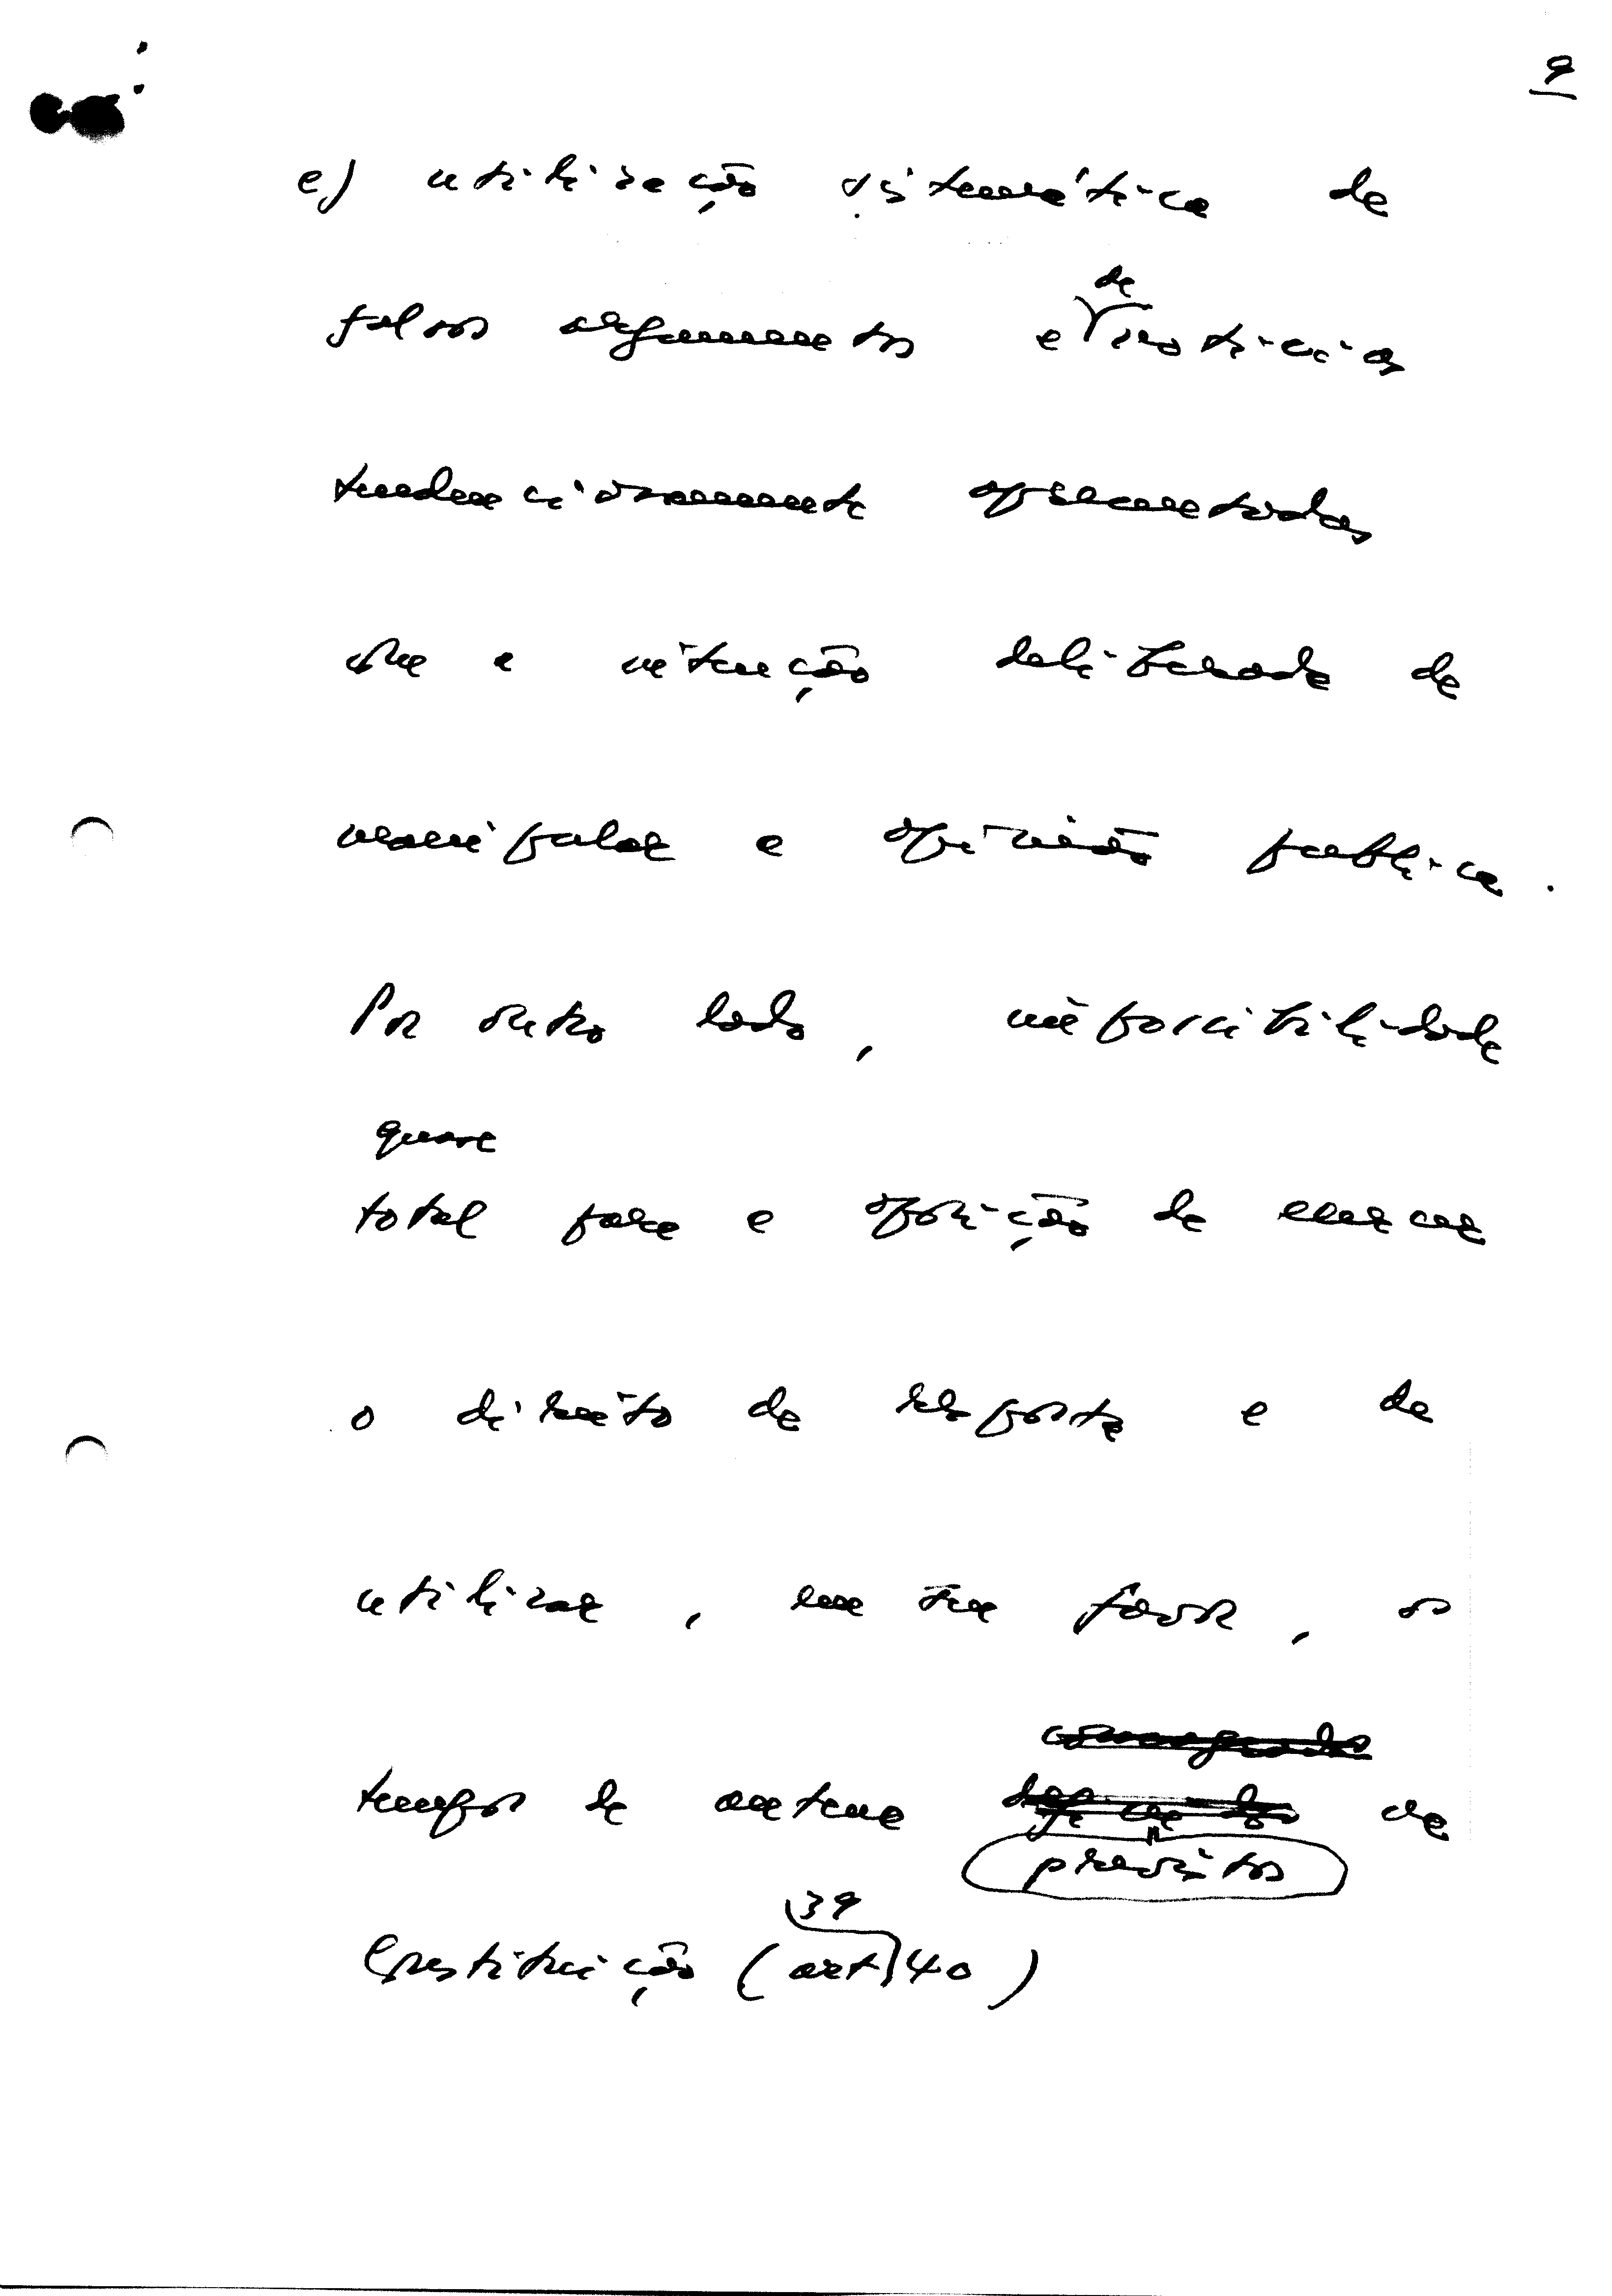 9
e) utilização sistemática de
falsos argumentos e de noticias
tendenciosamente apresentadas
com a intenção deliberada de
manipular a opinião publica.
Por outro lado, impossibilidade
quase
total para a oposição de exercer
o direito de resposta e de
utilizar, em seu favor, os
consagrados
tempos de antena definidos na
previstos
39
Constituição (art 40)